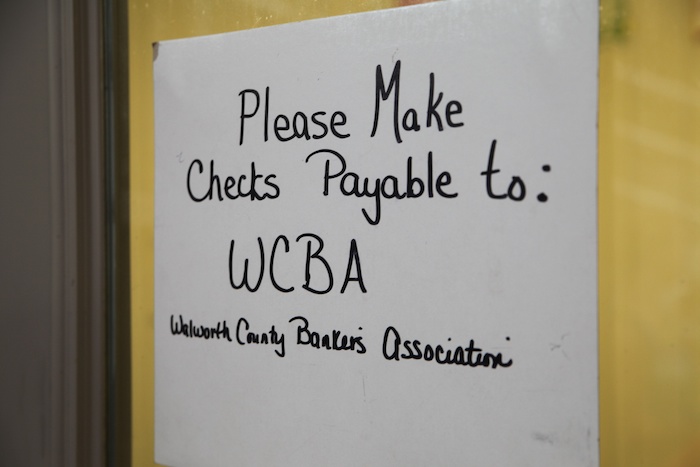 Please Make
Checks Payable to:
WCBA
Walworth County Bankers Association